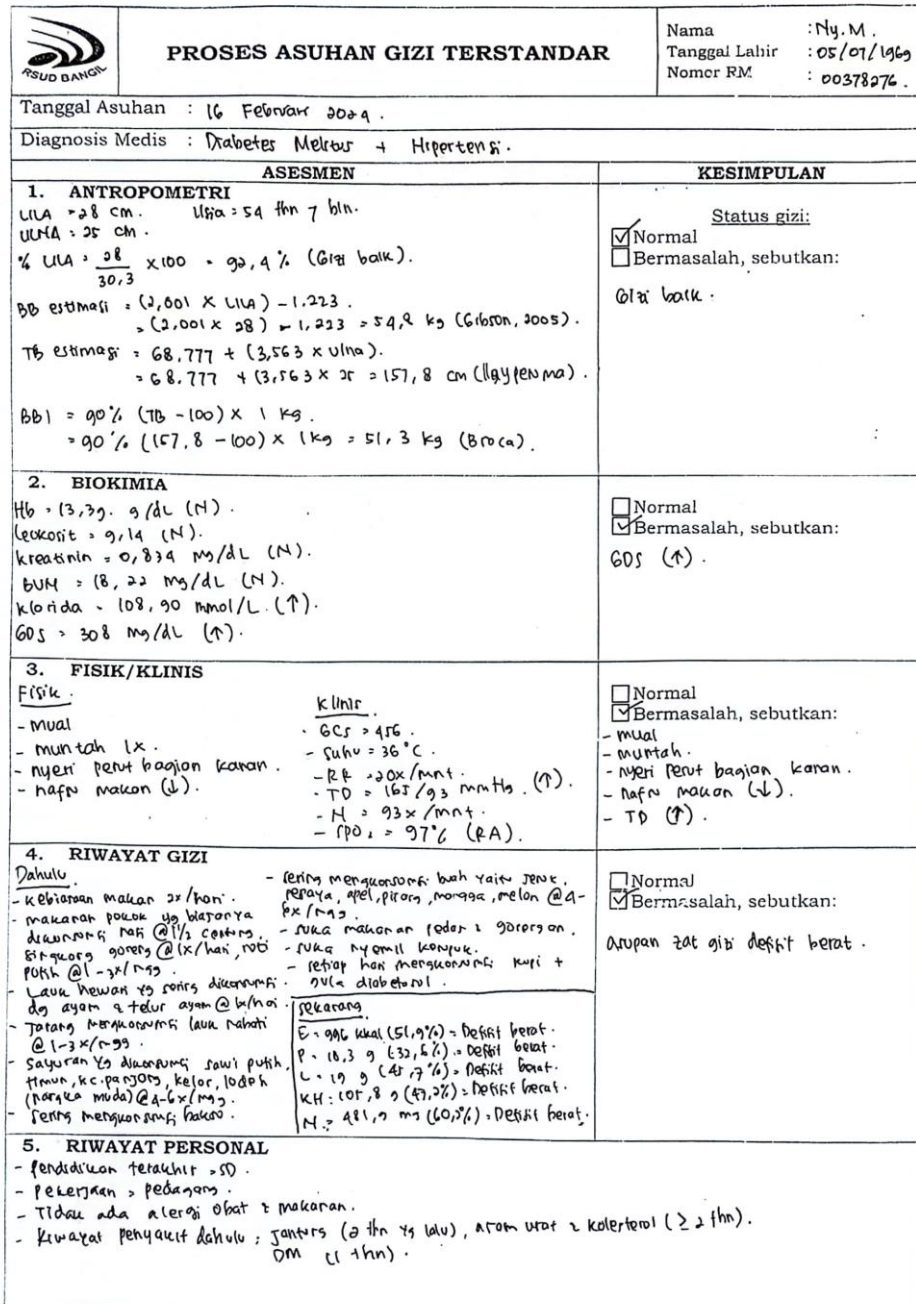 RSUD BANGIL
PROSES ASUHAN GIZI TERSTANDAR
Nama : Ny. M.
Tanggal Lahir : 05/07/1969
Nomor RM : 00378276.
Tanggal Asuhan : 16 Februari 2024.
Diagnosis Medis : Diabetes Melitus + Hipertensi.
ASESMEN
KESIMPULAN
1. ANTROPOMETRI
LILA = 28 cm. Usia = 54 thn 7 bln.
ULNA = 25 cm.
% LILA = 28/30,3 x 100 = 92,4 % (Gizi baik).
BB estimasi = (2,001 x LILA) - 1.223.
= (2,001 x 28) - 1,223 = 54,8 kg (Gibson, 2005).
TB estimasi = 68.777 + (3,563 x ulna).
= 68.777 + (3,563 x 25 = 157,8 cm (Ilaypenma).
BBI = 90% (TB - 100) x 1 kg.
= 90% (157,8 - 100) x 1kg = 51,3 kg (Broca).
Status gizi:
Normal
Bermasalah, sebutkan:
Gizi baik.
2. BIOKIMIA
Hb = 13,39. g/dL (N).
Leukosit = 9,14 (N).
Kreatinin = 0,834 mg/dL (N).
BUN = 18,22 mg/dL (N).
Klorida = 108,90 mmol/L. (↑).
GDS = 308 mg/dL (↑).
Normal
Bermasalah, sebutkan:
GDS (↑).
3. FISIK/KLINIS
Fisik.
- mual
- muntah 1x.
- nyeri perut bagian kanan.
- nafsu makan (↓).
Klinis
- GCS = 456.
- Suhu = 36°C.
- RR = 20x/mnt.
- TD = 165/93 mmHg. (↑).
- N = 93x/mnt.
- SPO2 = 97% (RA).
Normal
Bermasalah, sebutkan:
- mual
- muntah.
- nyeri perut bagian kanan.
- nafsu makan (↓).
- TD (↑).
4. RIWAYAT GIZI
Dahulu
- Kebiasaan makan 2x/hari.
- makanan pokok yg biasanya
dikonsumsi nasi @1½ centong,
singkong goreng @1x/hari, roti
putih @1-3x/mgg.
- Lauk hewani yg sering dikonsumsi
dg ayam & telur ayam @1x/hari.
- Jarang mengkonsumsi lauk nabati
@1-3x/mgg.
- Sayuran yg dikonsumsi sawi putih,
timun, kc.panjang, kelor, lodeh
(nangka muda) @4-6x/mgg.
- Sering mengkonsumsi bakso.
- sering mengkonsumsi buah yaitu jeruk,
pepaya, apel, pisang, mangga, melon @4-
6x/mgg.
- suka makanan pedas & gorengan.
- suka nyemil kerupuk.
- setiap hari mengkonsumsi kopi +
gula diabetasol.
Sekarang
E = 996 kkal (51,9%) = Defisit berat.
P = 18,3 g (32,6%) = Defisit berat.
L = 19 g (45,7%) = Defisit berat.
KH = 105,8 g (47,2%) = Defisit berat.
N = 481,9 mg (60,2%) = Defisit berat.
Normal
Bermasalah, sebutkan:
asupan zat gizi defisit berat.
5. RIWAYAT PERSONAL
- Pendidikan terakhir = SD.
- Pekerjaan = pedagang.
- Tidak ada alergi obat & makanan.
- Riwayat penyakit dahulu : Jantung (2 thn yg lalu), asam urat & kolesterol (≥ 2 thn).
DM (1 thn).